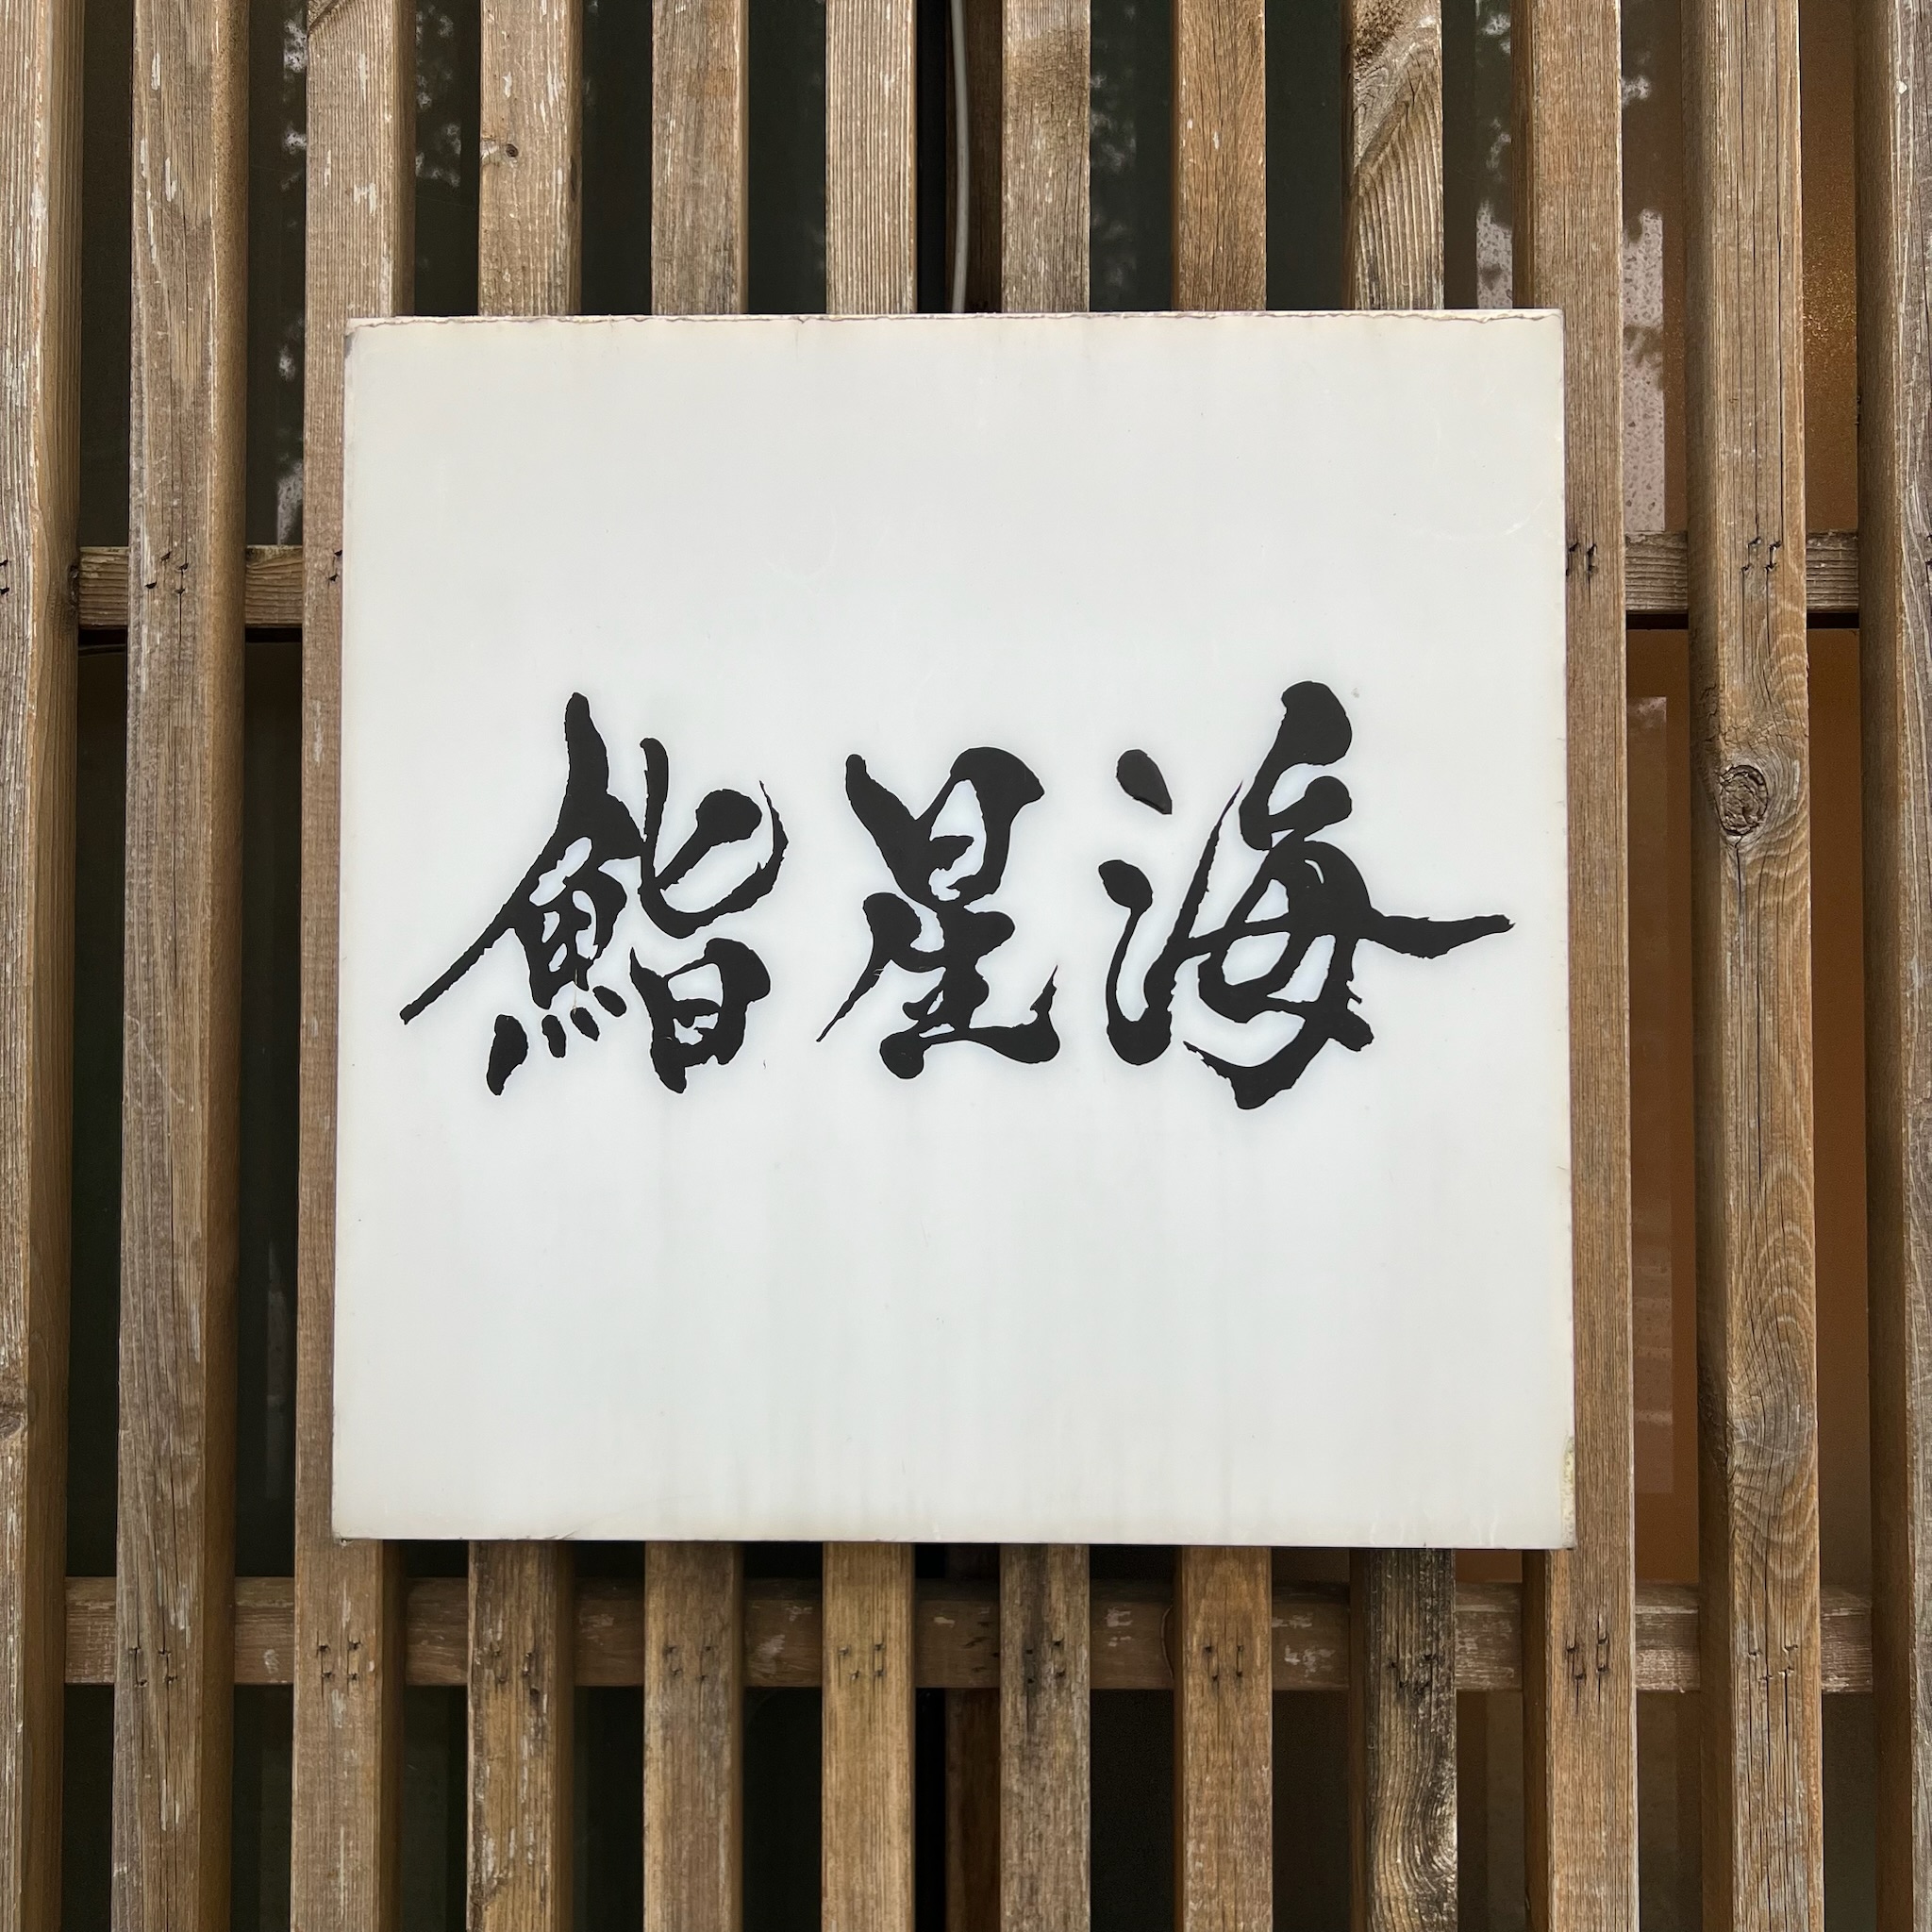 鮨星海